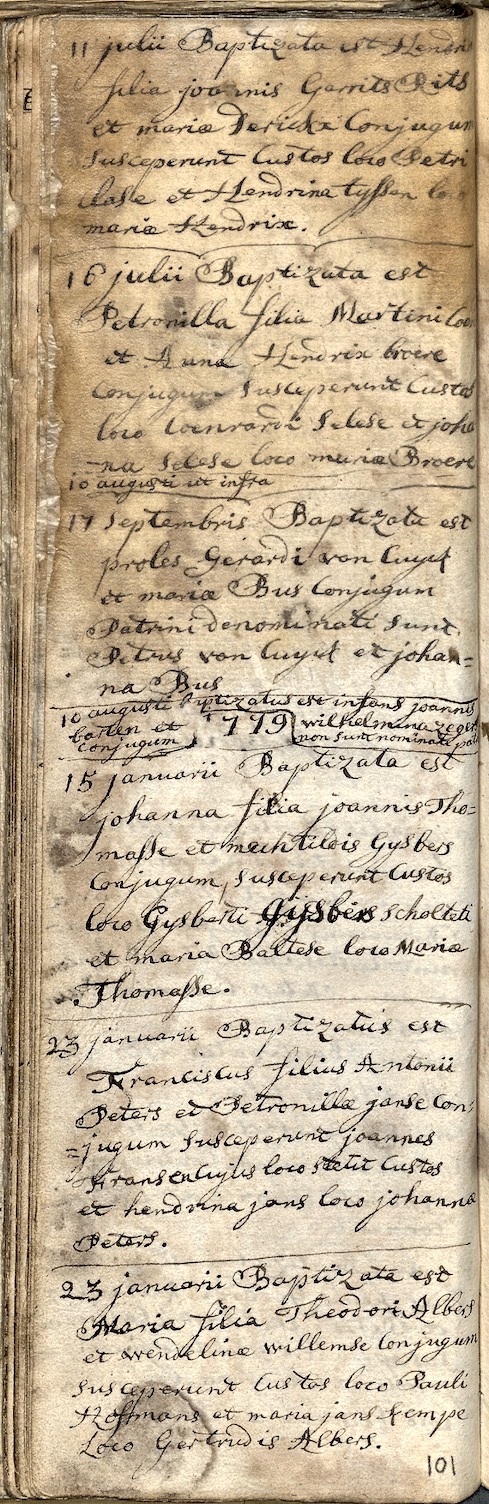 11 julii Baptizata est Hendri
filia joannis Gerrits Rits
et mariæ Derickx Conjugum
Susceperunt Custos loco Petri
Clase et Hendrina tyssen loco
mariæ Hendrix.
16 julii Baptizata est
Petronilla filia Martini Coen
et Anna Hendrix broere
Conjugum Susceperunt Custos
loco Coenrardi Selese et joha
na Selese loco mariæ Broere
10 augusti ut infra
17 Septembris Baptizata est
proles Gerardi van Cuyck
et mariæ Bus Conjugum
Patrini denominati Sunt
Petrus van Cuyck et johan=
na Bus
10 augusti baptizatus est infans joannis
barten et 1779 wilhelmina zeger
Conjugum non sunt nominati pat
15 januarii Baptizata est
johanna filia joannis Tho=
masse et mechtildis Gysbers
Conjugum, Susceperunt Custos
loco Gysberti Gijsbers Scholteti
et maria Baltese loco Mariæ
Thomasse.
23 januarii Baptizatus est
Franciscus filius Antonii
Peters et Petronillæ janse Con=
=jugum Susceperunt joannes
fransen Cujus loco stetit Custos
et hendrina jans loco johanna
Peters.
23 januarii Baptizata est
Maria filia Theodori Albers
et wendelinæ willemse Conjugum
susceperunt Custos loco Pauli
Hofmans et maria jans kempe
Loco Gertrudis Albers.
101